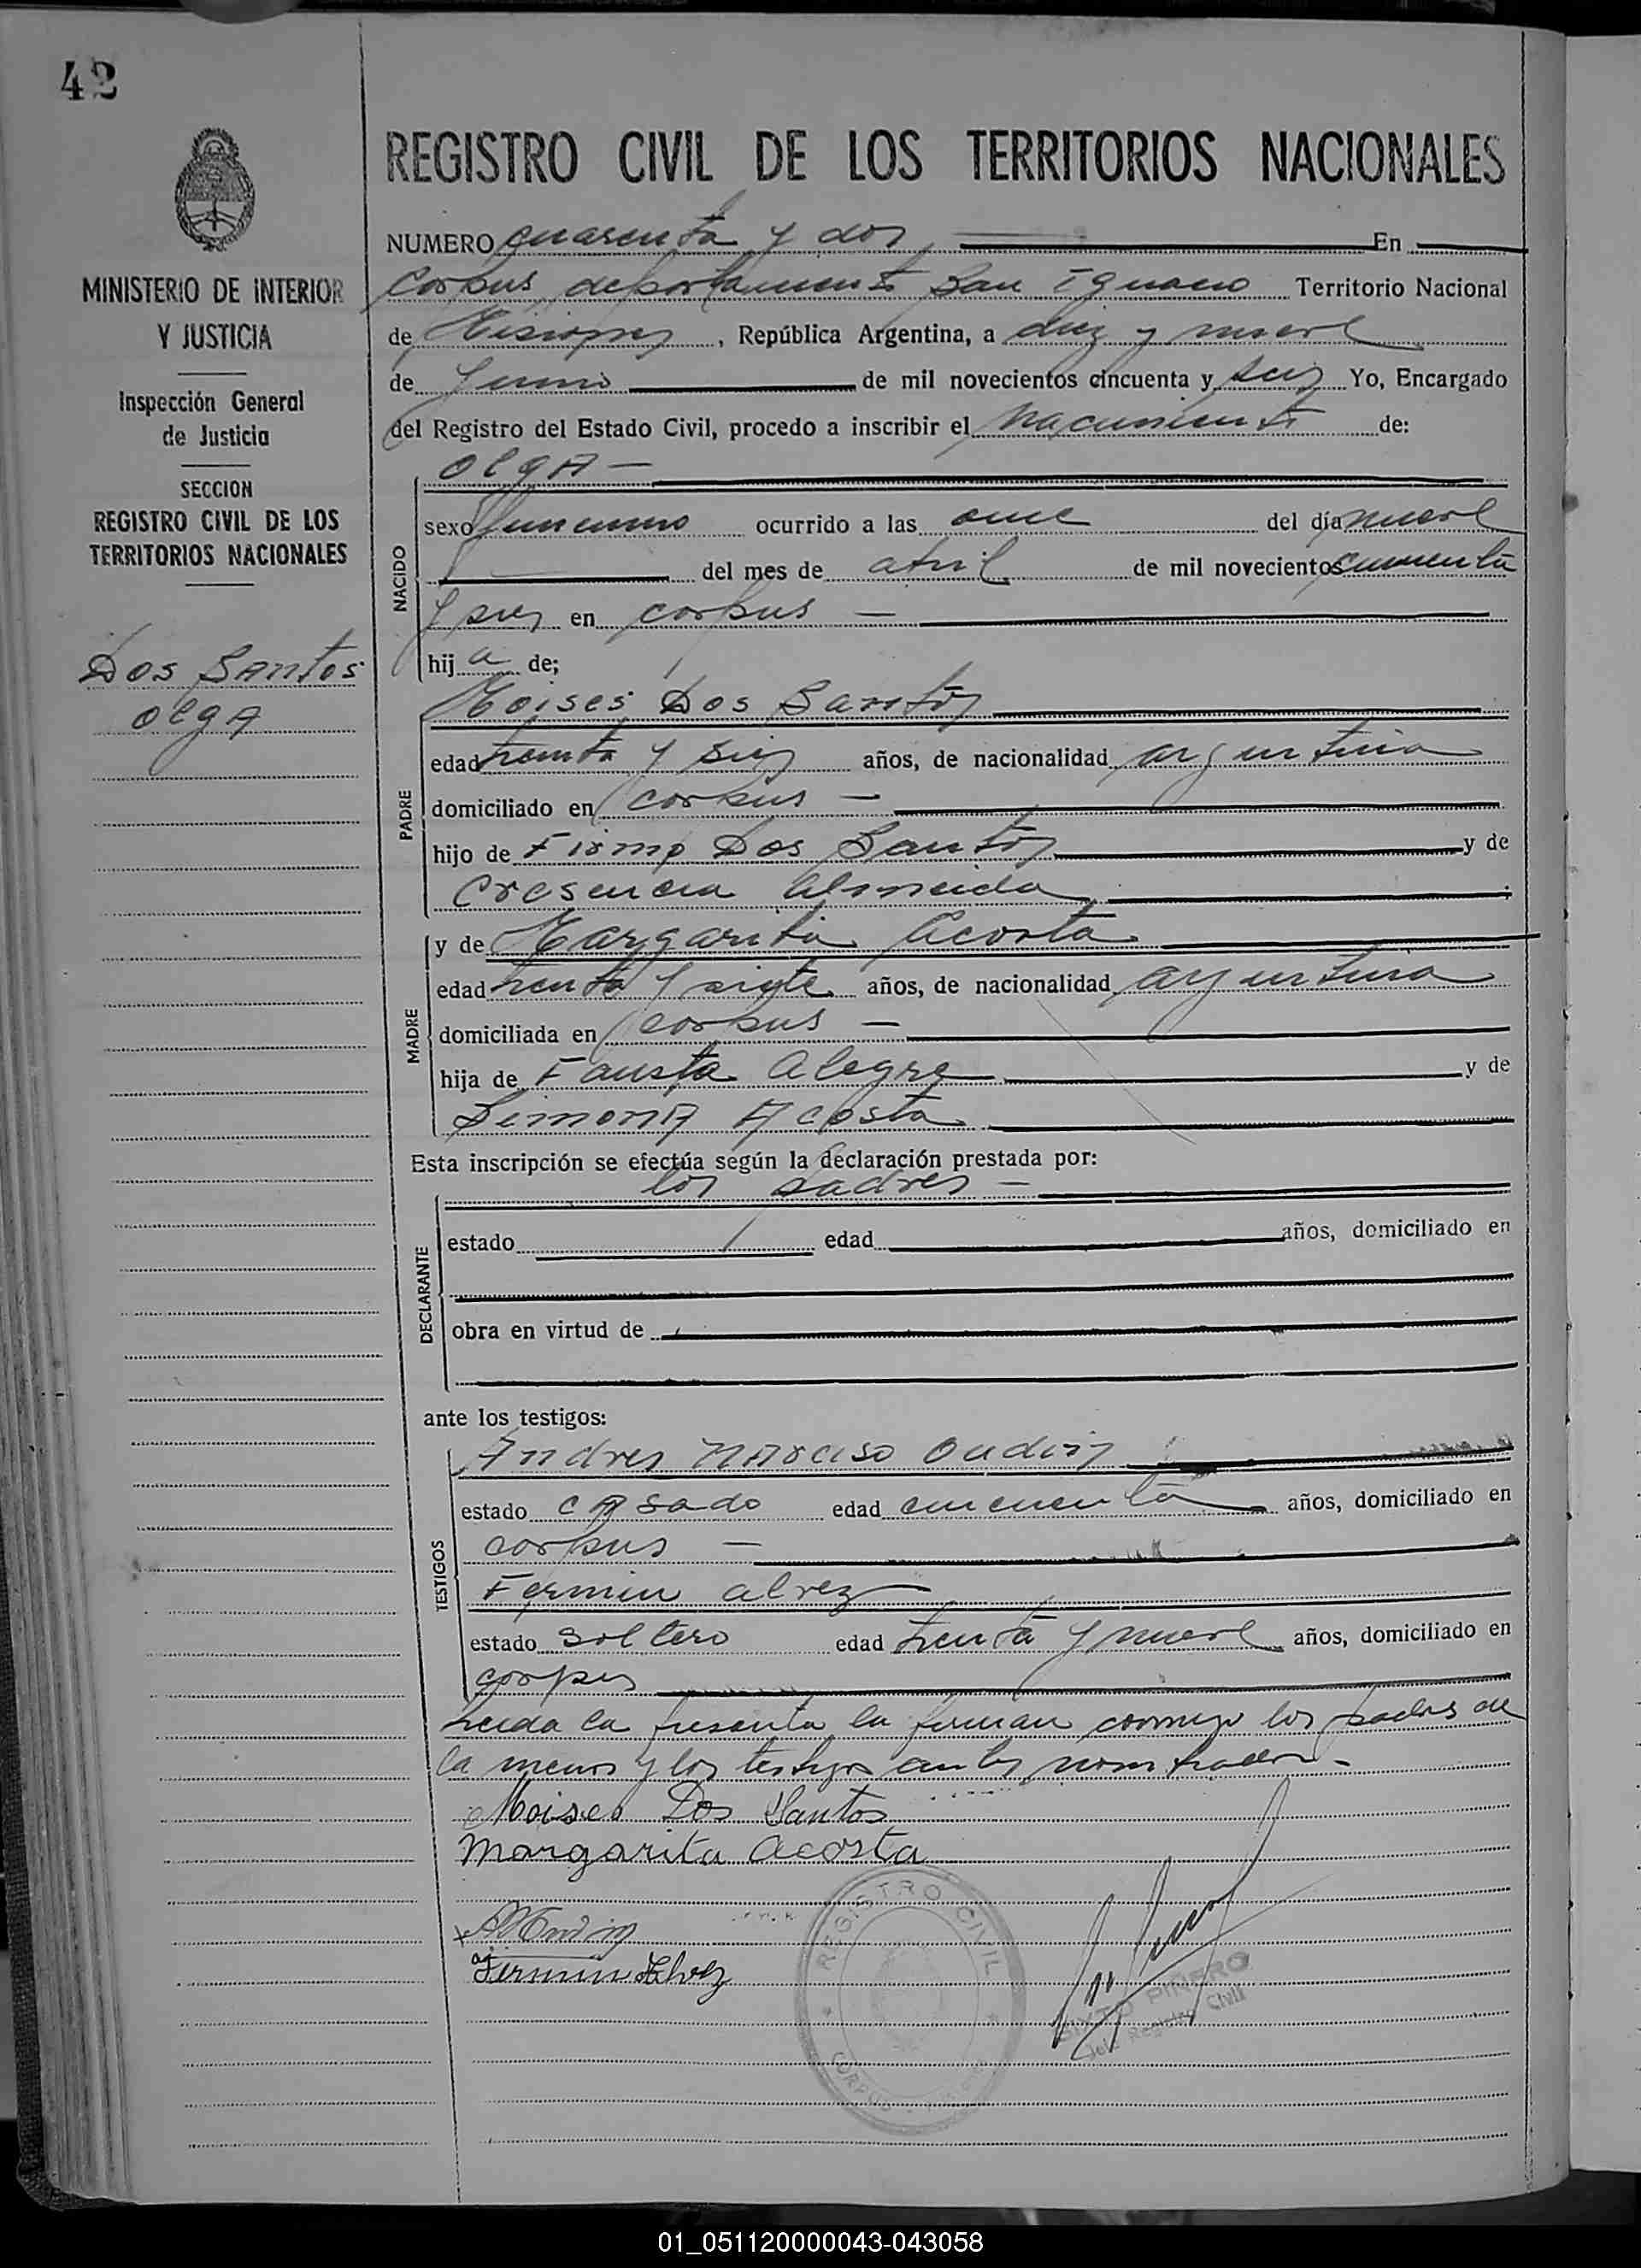 42
REGISTRO CIVIL DE LOS TERRITORIOS NACIONALES
MINISTERIO DE INTERIOR
Y JUSTICIA
Inspección General
de Justicia
SECCION
REGISTRO CIVIL DE LOS
TERRITORIOS NACIONALES
Dos Santos
Olga
NUMERO cuarenta y dos, En
Corpus, departamento San Ignacio Territorio Nacional
de Misiones, República Argentina, a diez y nueve
de Junio de mil novecientos cincuenta y seis Yo, Encargado
del Registro del Estado Civil, procedo a inscribir el nacimiento de:
Olga
NACIDO
sexo femenino ocurrido a las once del día nueve
del mes de abril de mil novecientos cincuenta
y seis en corpus
hija de;
PADRE
Moises Dos Santos
edad treinta y seis años, de nacionalidad argentina
domiciliado en corpus
hijo de Dos Santos y de
Cresencia Almeida
MADRE
y de Margarita Acosta
edad treinta y siete años, de nacionalidad argentina
domiciliada en corpus
hija de Fausta Alegre y de
Simona Acosta
Esta inscripción se efectúa según la declaración prestada por:
los padres
DECLARANTE
estado edad años, domiciliado en
obra en virtud de
ante los testigos:
TESTIGOS
Andres Narciso Oudin
estado casado edad cincuenta años, domiciliado en
corpus
Fermin alvez
estado soltero edad treinta y nueve años, domiciliado en
corpus
Leida la presente la firman conmigo los padres de
la menor y los testigos antes nombrados
Moises Dos Santos
Margarita Acosta
Fermin Alvez
REGISTRO CIVIL
CORPUS
SIXTO PIÑERO
Jefe Registro Civil
01_051120000043-043058